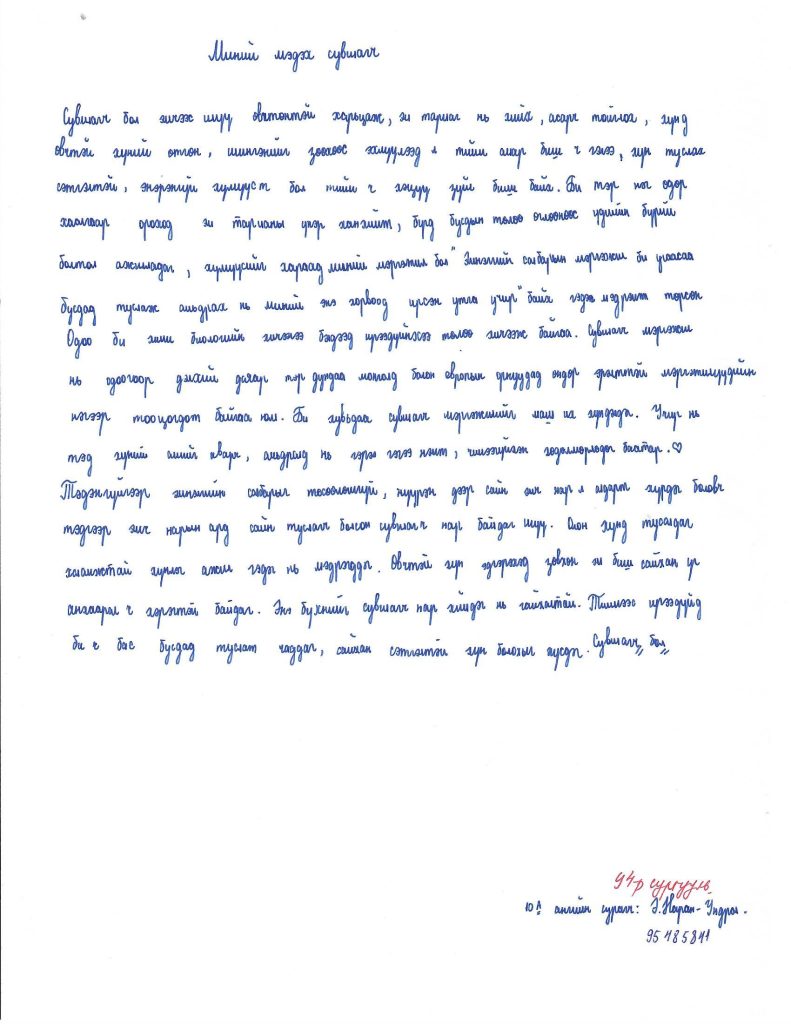 Миний мэдэх сувилагч
Сувилагч бол эмчээс илүү өвчтөнтэй харьцаж, эм тариаг нь хийж, асарч тойлох, хүнд
өвчтэй хүний өтгөн, шингэнийг зөөхөөс эхлүүлээд л тийм амар биш ч гэлээ, хүн туслах
сэтгэлтэй, энэрэнгүй хүмүүст бол тийм ч хэцүү зүйл биш байх. Би тэр нэг өдөр
хаалгаар ороход эм тарианы үнэр ханхийж, бүгд бусдын төлөө өглөөнөөс үдийн бүрий
болтол ажилладаг, хүмүүсийг хараад миний мэргэжил бол "Эмнэлгийн салбарын мэргэжил би угаасаа
бусдад туслаж амьдрах нь миний энэ хорвоод ирсэн утга учир" байх гэдэг мэдрэмж төрсөн
Одоо би хими биологийн хичээлээ бэлдээд ирээдүйнхээ төлөө хичээж байгаа. Сувилагч мэргэжил
нь одоогоор дэлхий даяар тэр дундаа монголд болон европын орнуудад өндөр эрэлттэй мэргэжилүүдийн
нэгээр тооцогдож байгаа юм. Би хувьдаа сувилагч мэргэжлийг маш их хүндэлдэг. Учир нь
тэд хүний амийг аварч, амьдралд нь гэрэл гэгээ нэмж, чимээгүйхэн хөдөлмөрлөдөг баатар. ♡
Тэдэнгүйгээр эмнэлгийн салбарыг төсөөлөшгүй, нүүрэн дээр сайн эмч нар л алдарт хүрдэг боловч
тэдгээр эмч нарын ард сайн туслагч болсон сувилагч нар байдаг шүү. Олон хүнд тусалдаг
халамжтай хүнлэг ажил гэдэг нь мэдрэгддэг. Өвчтэй хүн эдгэрэхэд зөвхөн эм биш сайхан үг
анхаарал ч хэрэгтэй байдаг. Энэ бүхнийг сувилагч нар хийдэг нь гайхалтай. Тиймээс ирээдүйд
би ч бас бусдад туслаж чаддаг, сайхан сэтгэлтэй хүн болохыг хүсдэг. Сувилагч бол
94-р сургууль
10А ангийн сурагч: Э.Наран-Үндрал.
95485841